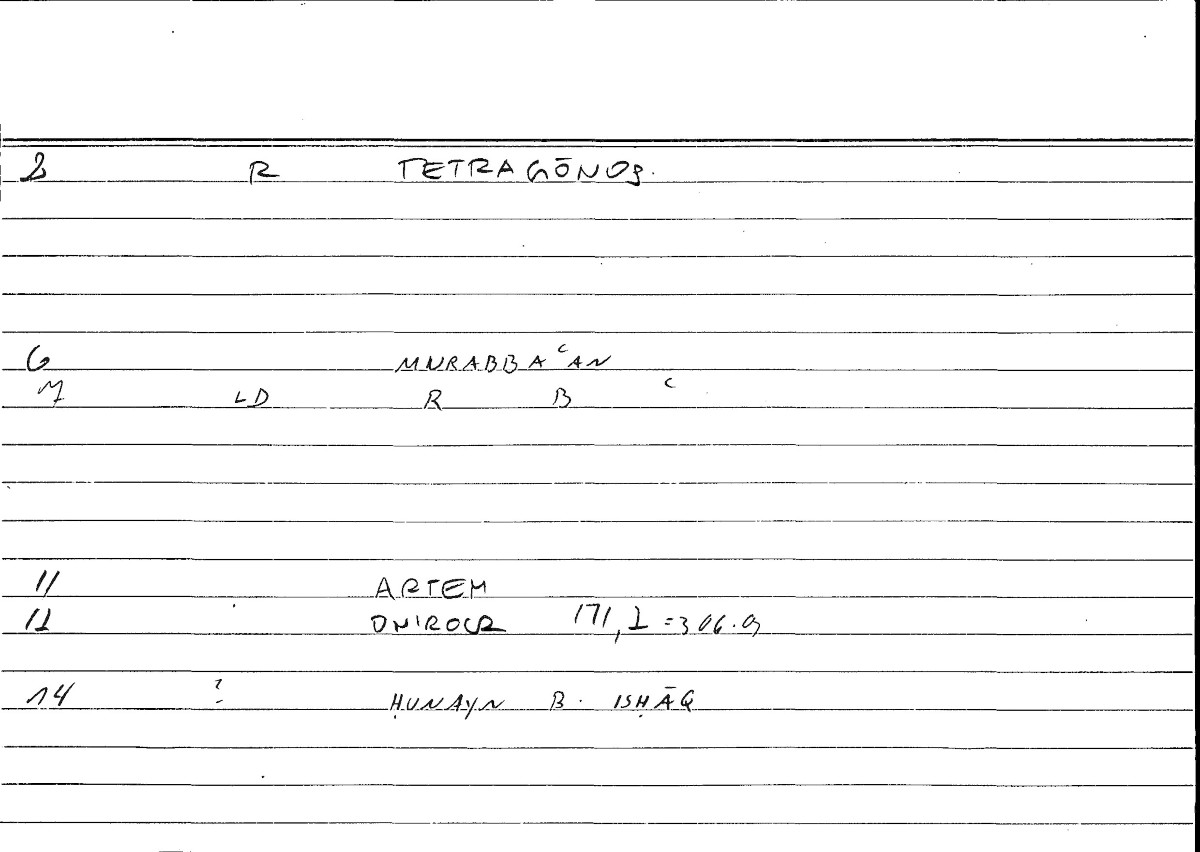 2 R TETRAGŌNOS.
6 MURABBAʿAN
7 LD R B ʿ
11 ARTEM
12 ONIROCR 171,2 = 306.9
14 ? ḤUNAYN B. ISḤĀQ